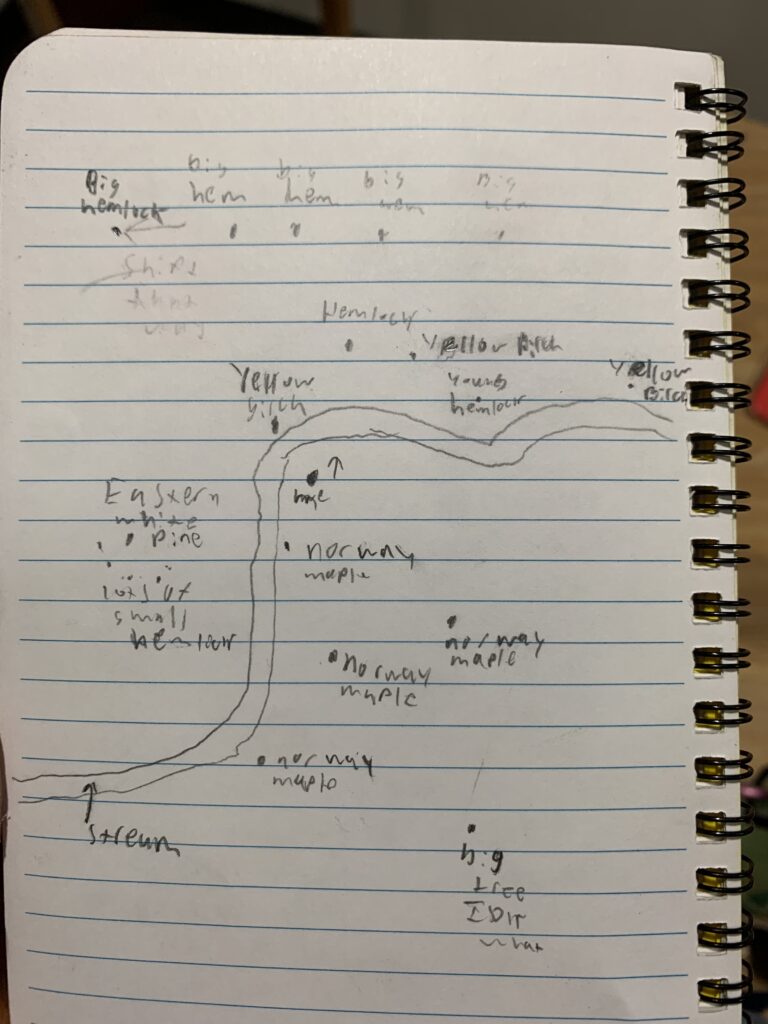 Big
hemlock
big
hem
big
hem
big
hem
Big
hem
Shift
that
way
Hemlock
Yellow Birch
young
hemlock
Yellow
Birch
Yellow
birch
huge
Eastern
white
pine
lots of
small
hemlock
norway
maple
norway
maple
norway
maple
norway
maple
stream
big
tree